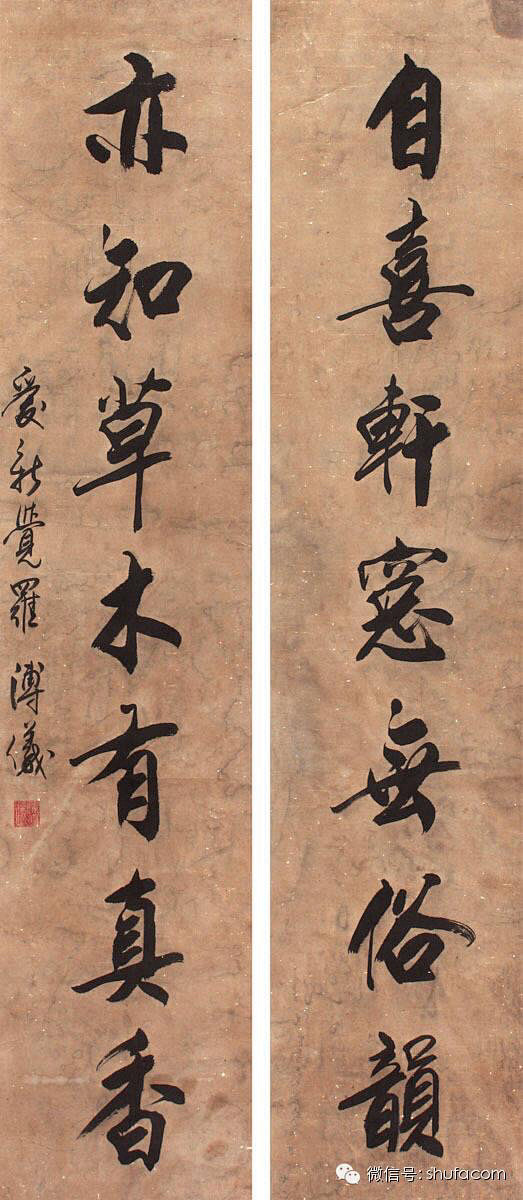 自喜軒窓無俗韻
亦知草木有真香
愛新覺羅 溥儀
微信号: shufacom